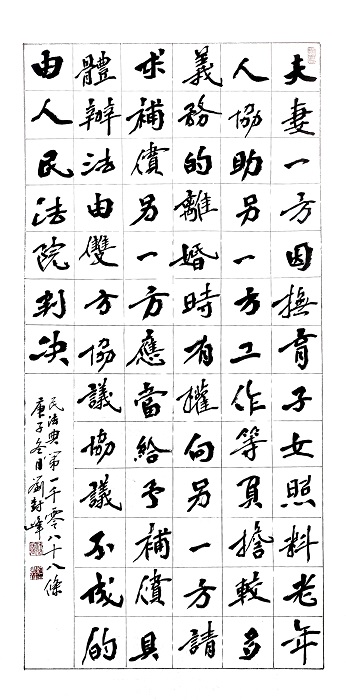 夫妻一方因撫育子女照料老年
人協助另一方工作等負擔較多
義務的離婚時有權向另一方請
求補償另一方應當給予補償具
體辦法由雙方協議協議不成的
由人民法院判決
民法典第一千零八十八條
庚子冬月劉封峰